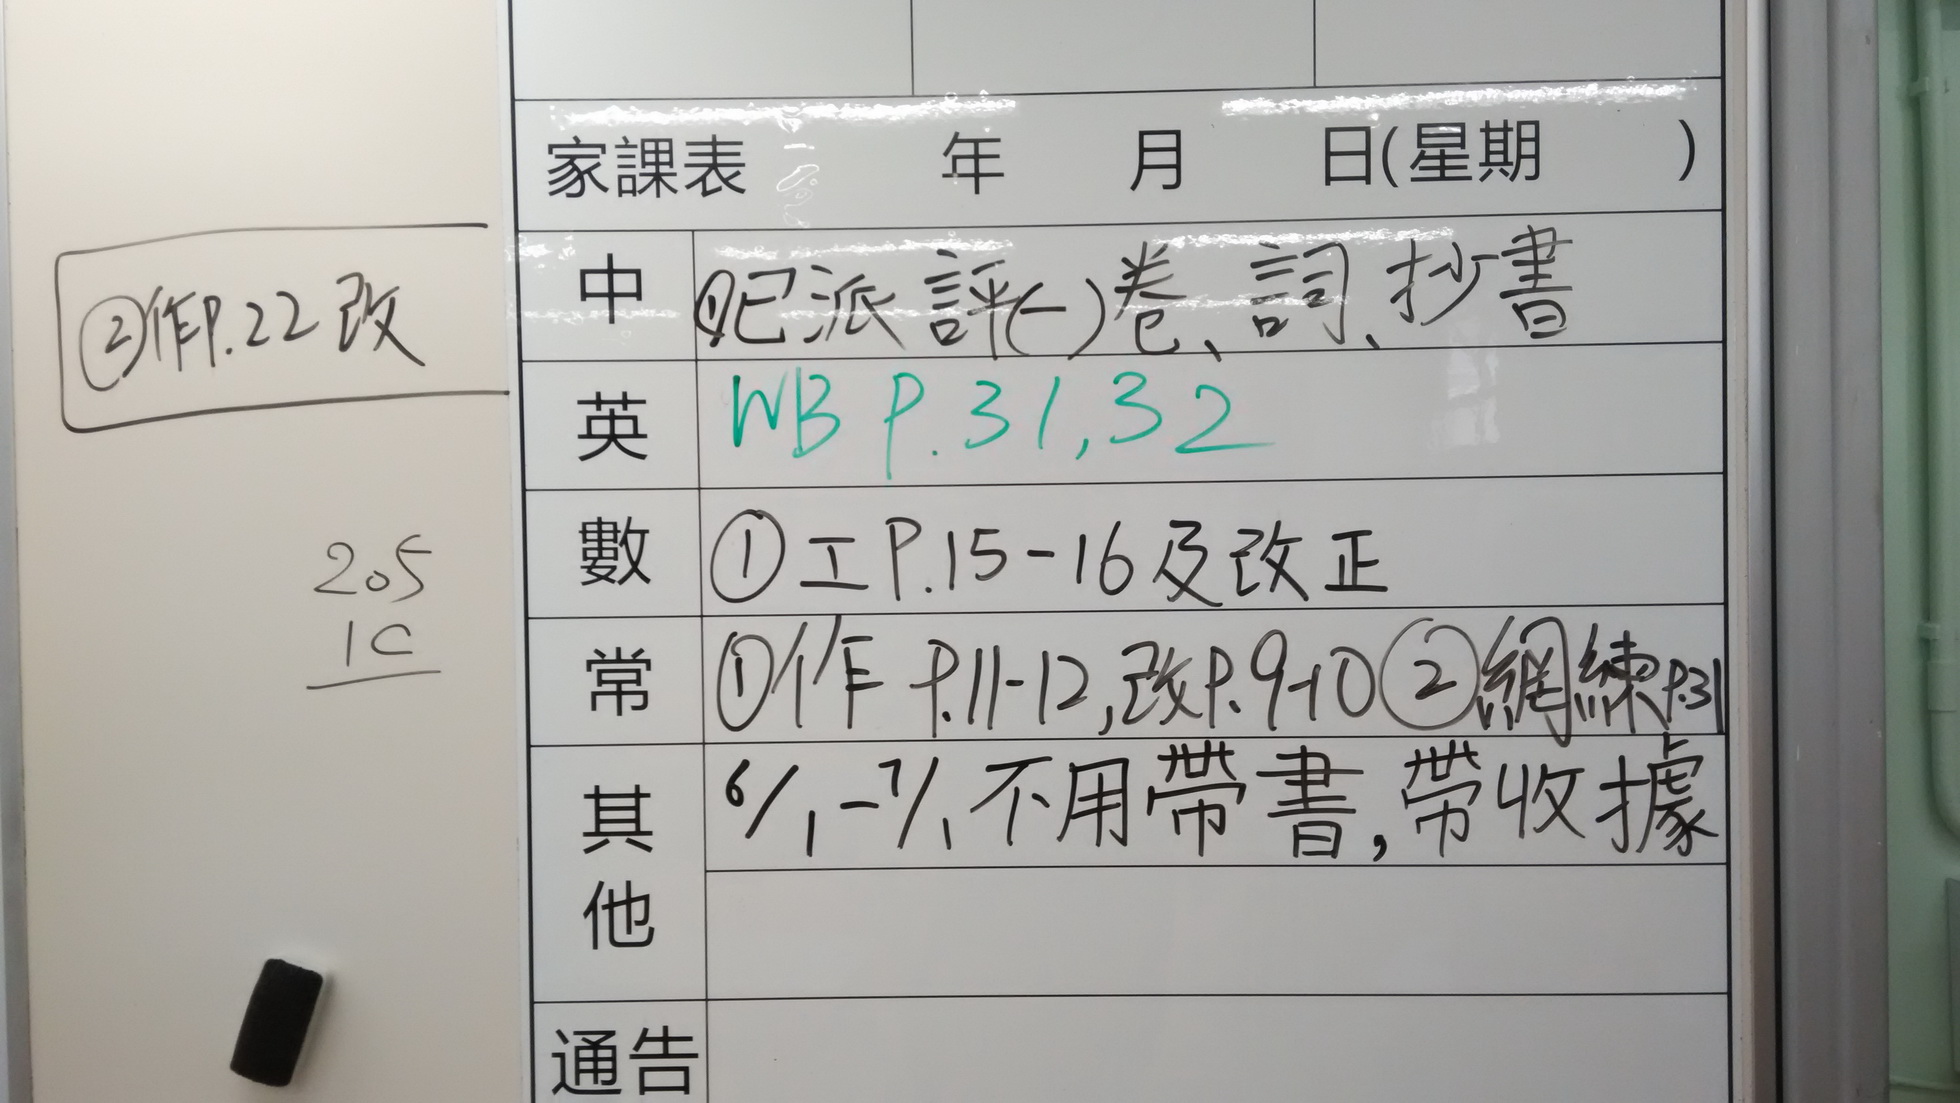 家課表 年 月 日(星期 )
②作P.22改
中 ①已派評(一)卷、詞、抄書
英 WB P.31,32
數 ①工P.15-16及改正
常 ①作 P.11-12,改P.9-10②網練P.31
205
10
其他 6/1-7/1不用帶書,帶收據
通告